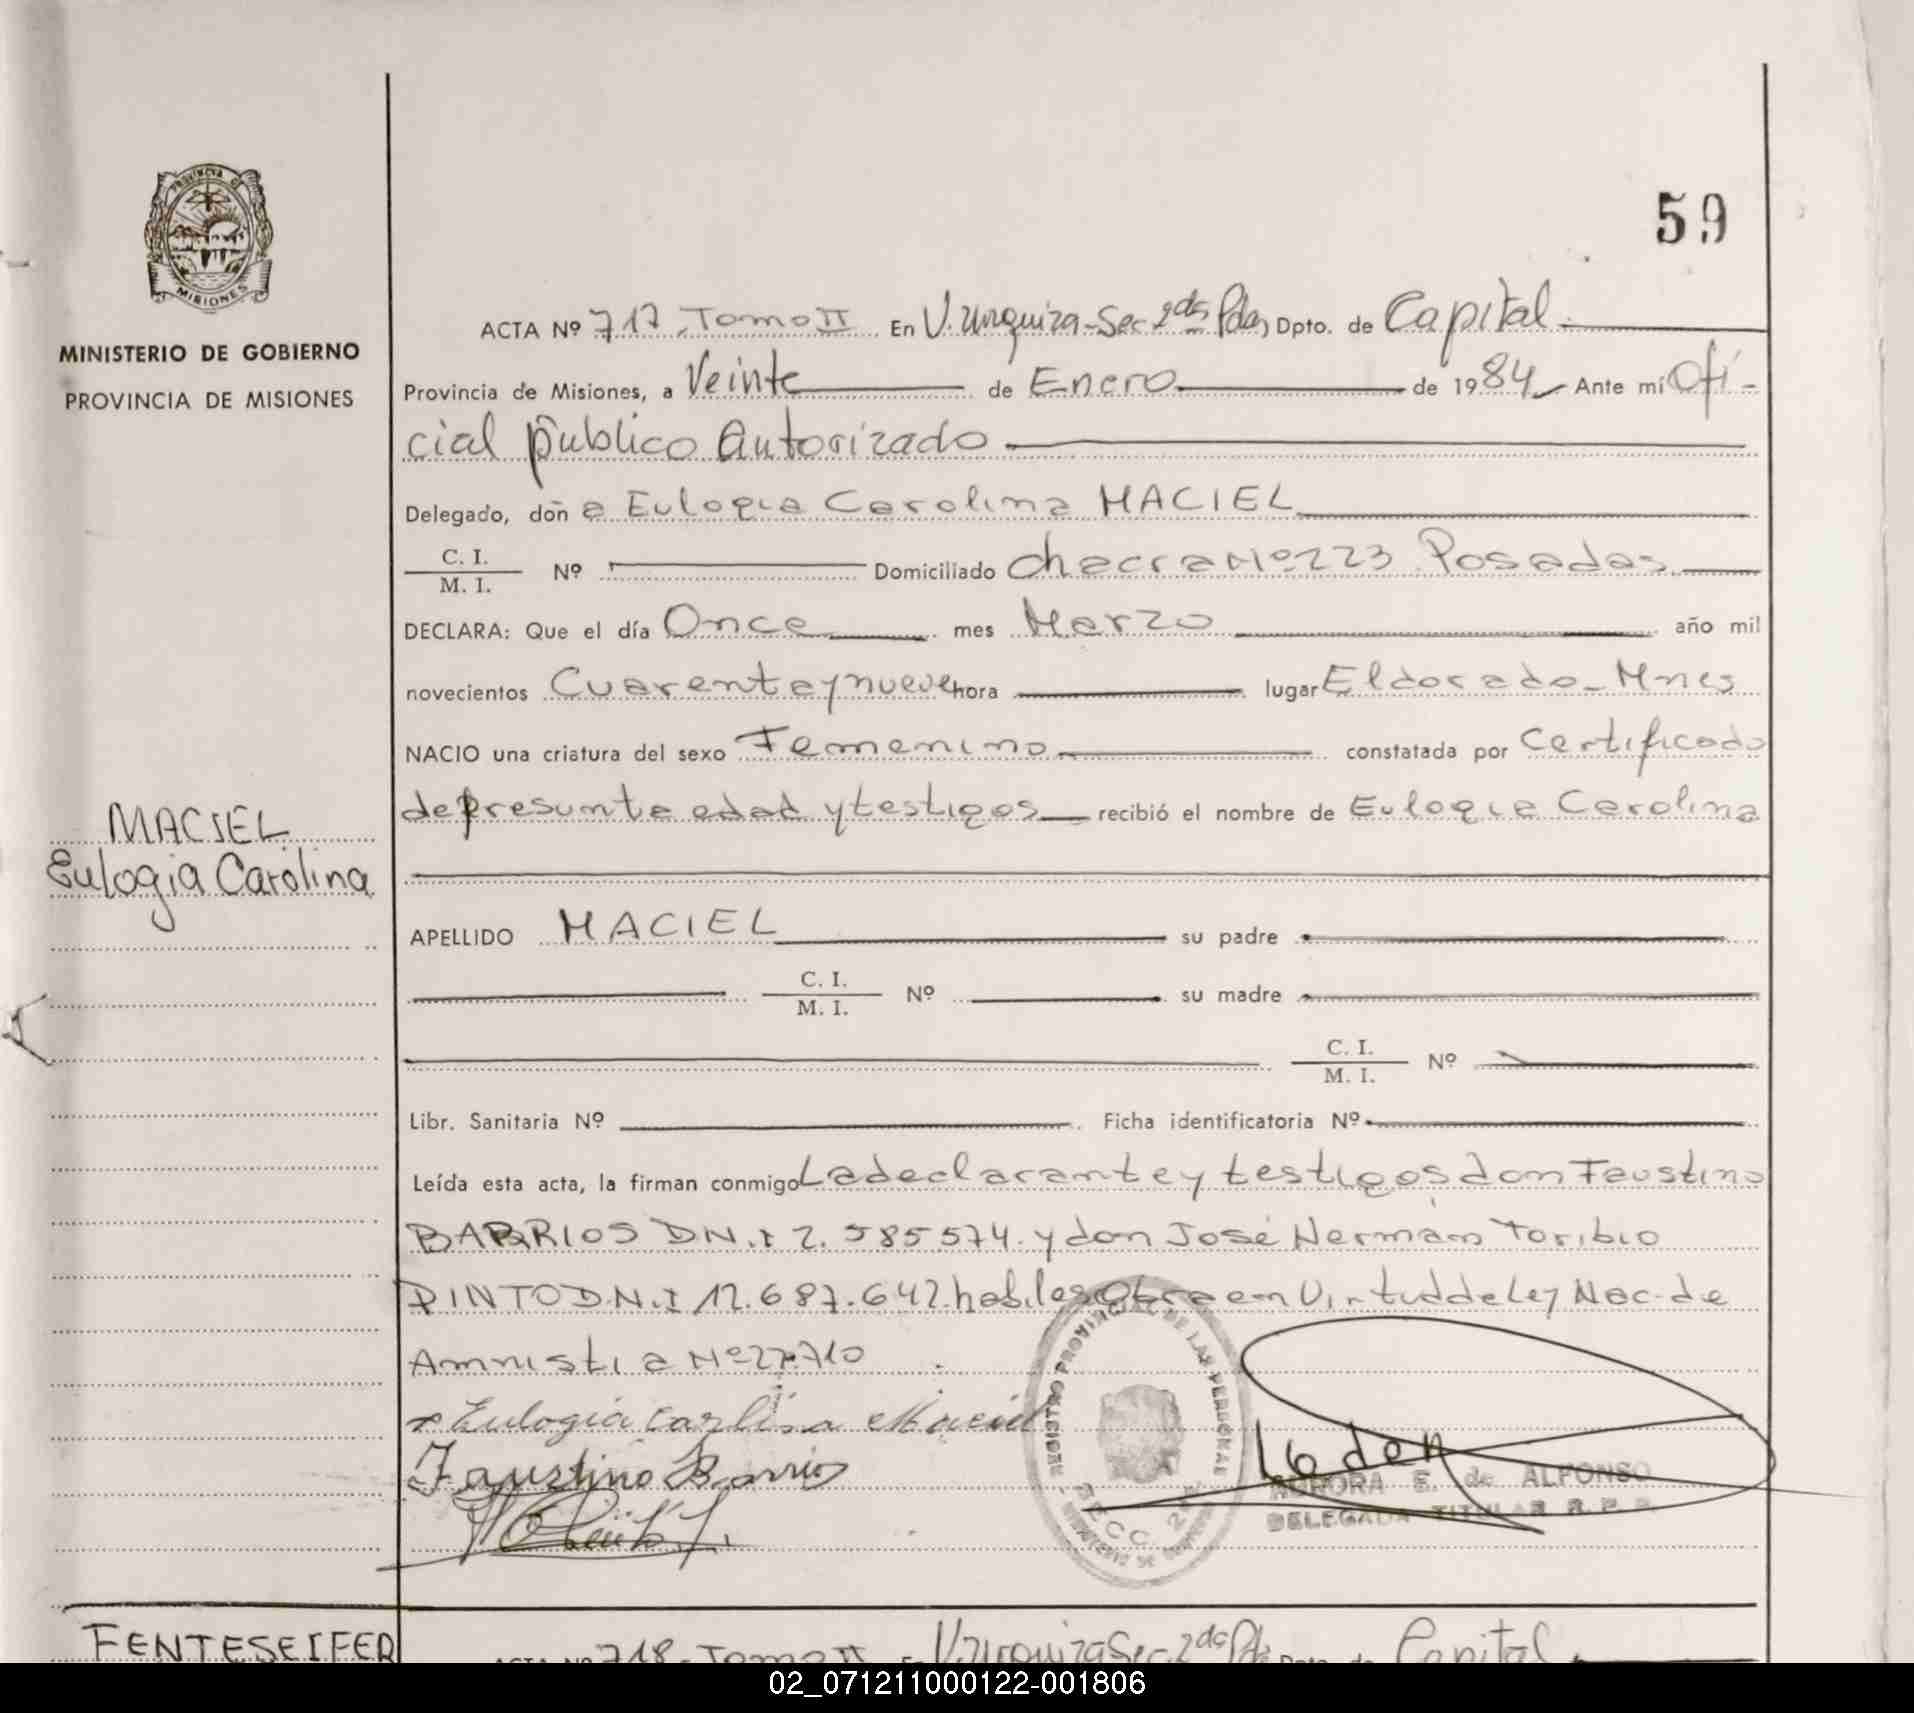 59
PROVINCIA DE
MISIONES
MINISTERIO DE GOBIERNO
PROVINCIA DE MISIONES
ACTA Nº 717 Tomo II En V. Urquiza-Sec 2da Pdas Dpto. de Capital
Provincia de Misiones, a Veinte de Enero de 1984 Ante mí Ofi-
cial público Autorizado
Delegado, doña Eulogia Carolina MACIEL
C. I.
M. I. Nº Domiciliado chacra Nº 223 Posadas
DECLARA: Que el día Once mes Marzo año mil
novecientos Cuarenta y nueve hora lugar Eldorado-Mnes
NACIO una criatura del sexo Femenino constatada por Certificado
de presunta edad y testigos recibió el nombre de Eulogia Carolina
MACIEL
Eulogia Carolina
APELLIDO MACIEL su padre
C. I.
M. I. Nº su madre
C. I.
M. I. Nº
Libr. Sanitaria Nº Ficha identificatoria Nº
Leída esta acta, la firman conmigo La declarante y testigos don Faustino
BARRIOS D.N.I 2.585574 y don José Hernán Toribio
PINTO D.N.I 12.687.642 habiles Obra en Virtud de Ley Nac. de
Amnistia Nº 22.710
Eulogia Carlina Maciel
Faustino Barrios
REGISTRO PROVINCIAL DE LAS PERSONAS
SECC. 2da
AURORA E. de ALFONSO
DELEGADA TITULAR R. P. P.
FENTESEIFER
ACTA Nº 718 - Tomo II En V. Urquiza Sec. 2da Pda Dpto. de Capital
02_071211000122-001806